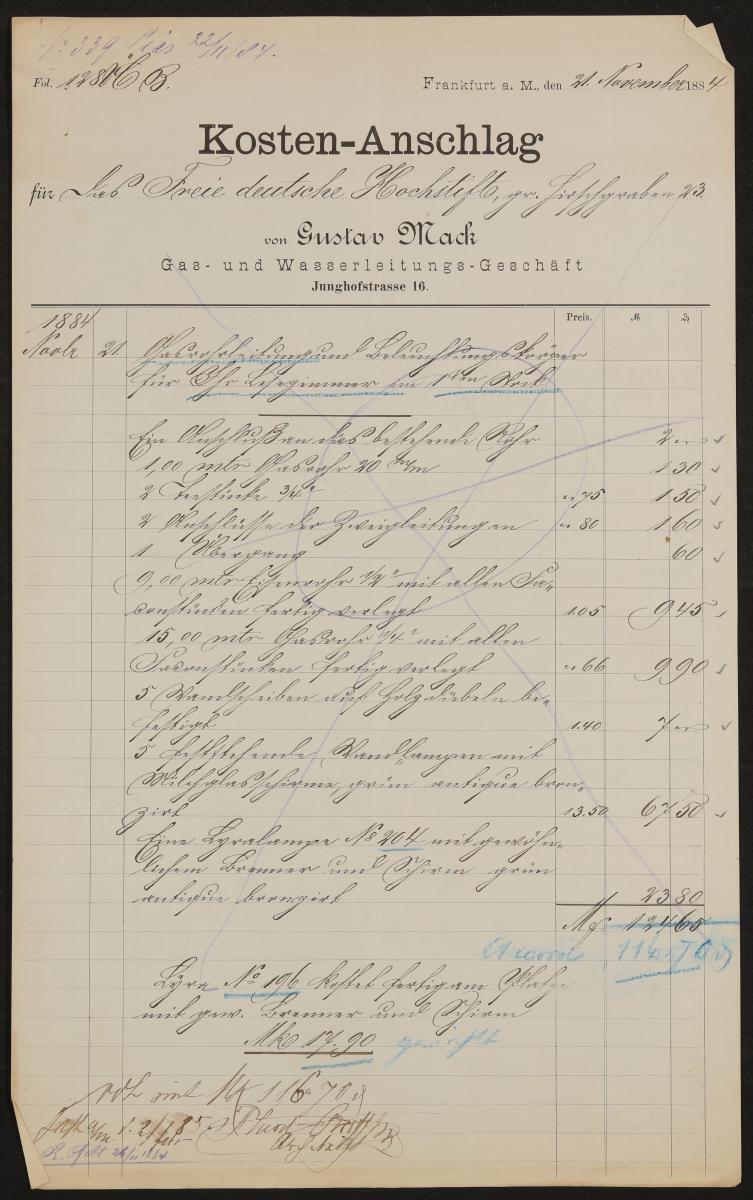 No 339 22/11/84.
Fol. 1280 C B.
Frankfurt a. M., den 21. November 1884.
Kosten-Anschlag
für das Freie deutsche Hochstift, gr. Hirschgraben 23.
von Gustav Mack
Gas- und Wasserleitungs-Geschäft
Junghofstrasse 16.
Preis. M. ₰
1884
Novbr 21 Gasrohrleitung und Beleuchtungskörper
für Ihr Lesezimmer im 1ten Stock
Ein Anschluß an das bestehende Rohr 2 "
1,00 mtr Gasrohr 20 m/m 1 30
2 Teestücke 3/4" " 75 1 50
2 Anschlüsse der Zweigleitungen " 80 1 60
1 Übergang 60
9,00 mtr Eisenrohr 1/2" mit allen Fa-
constücken fertig verlegt 1.05 9 45
15,00 mtr Gasrohr 1/4" mit allen
Faconstücken fertig verlegt " 66 9 90
5 Wandscheiben auf Holzdübeln be-
festigt 1.40 7 "
5 feststehende Wandlampen mit
Milchglasschirme, grün antique bron-
zirt 13.50 67 50
Eine Lyralampe No 204 mit gewöhn-
lichem Brenner und Schirm grün
antique bronzirt 23 80
Mk 124 65
Accord 116.70 ₰
Lyra No 196 kostet fertig am Platze
mit gew. Brenner und Schirm
Mk 17.90 gewählt
mit M 116 70 ₰
2/1 85
Architekt
26/11 1884